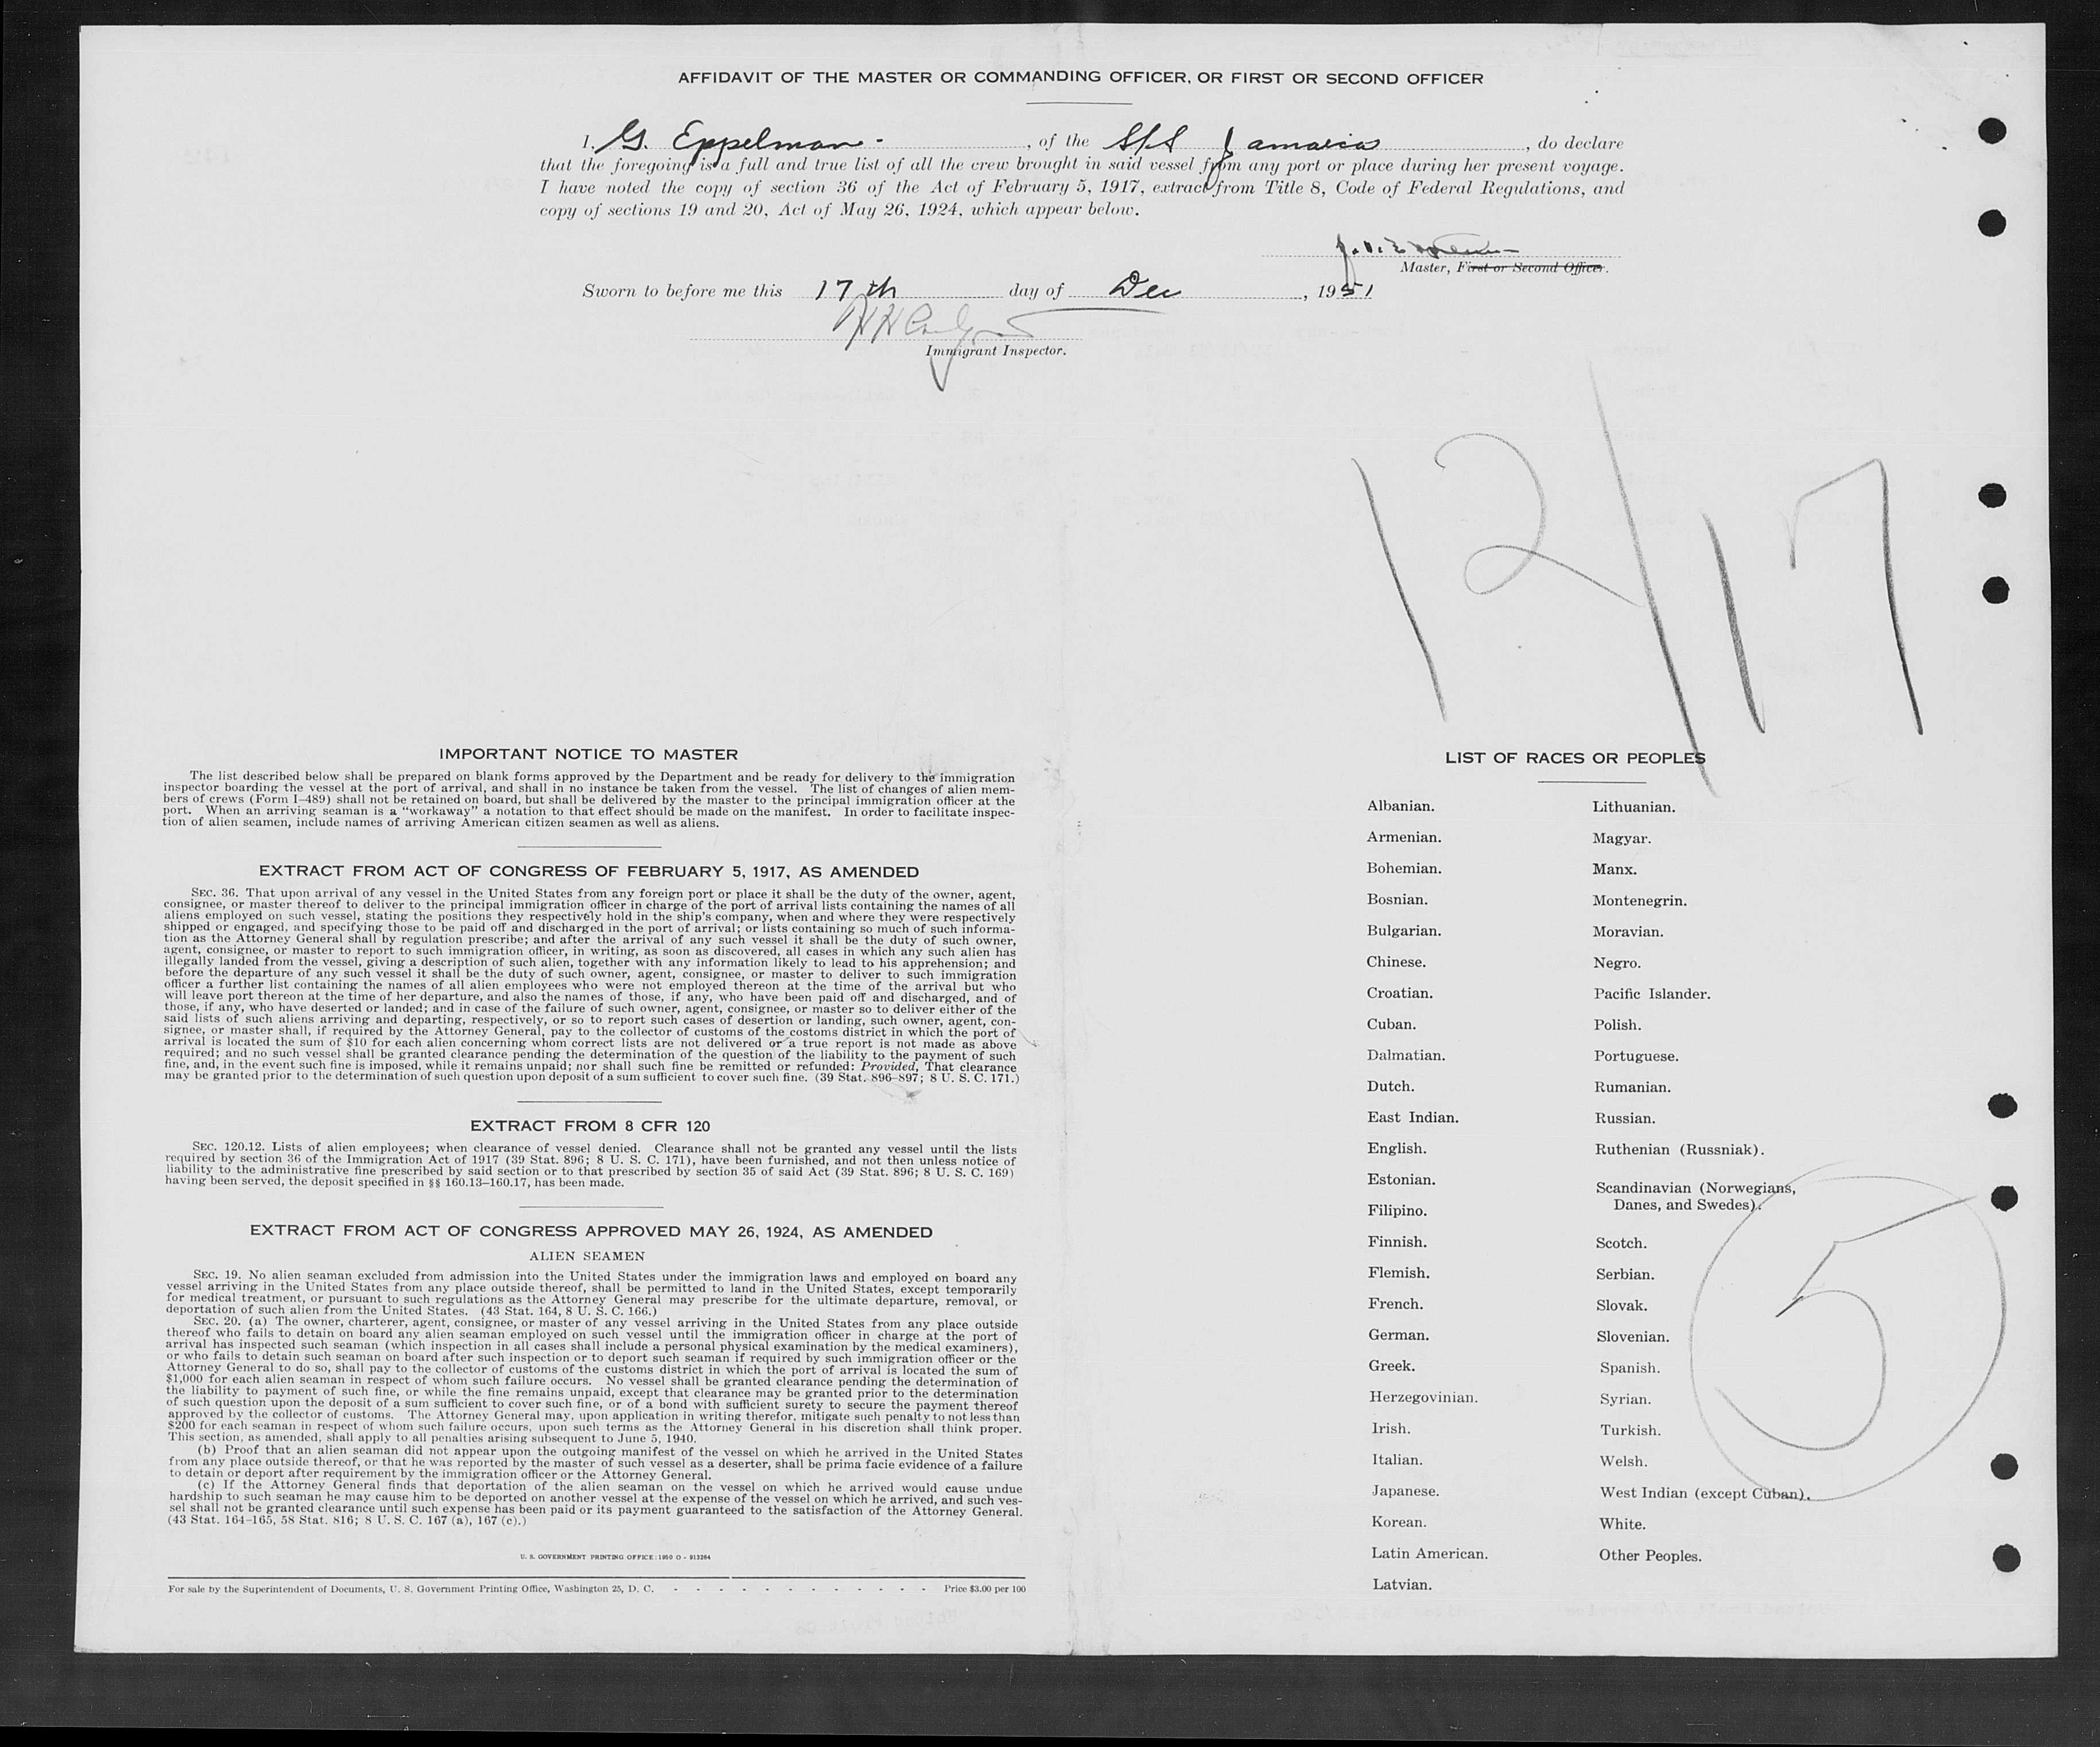 AFFIDAVIT OF THE MASTER OR COMMANDING OFFICER, OR FIRST OR SECOND OFFICER
I, G. Eppelman - , of the S/S Jamaica , do declare
that the foregoing is a full and true list of all the crew brought in said vessel from any port or place during her present voyage.
I have noted the copy of section 36 of the Act of February 5, 1917, extract from Title 8, Code of Federal Regulations, and
copy of sections 19 and 20, Act of May 26, 1924, which appear below.
Master, First or Second Officer.
Sworn to before me this 17th day of Dec , 1951
Immigrant Inspector.
12/17
IMPORTANT NOTICE TO MASTER
The list described below shall be prepared on blank forms approved by the Department and be ready for delivery to the immigration
inspector boarding the vessel at the port of arrival, and shall in no instance be taken from the vessel. The list of changes of alien mem-
bers of crews (Form I-489) shall not be retained on board, but shall be delivered by the master to the principal immigration officer at the
port. When an arriving seaman is a "workaway" a notation to that effect should be made on the manifest. In order to facilitate inspec-
tion of alien seamen, include names of arriving American citizen seamen as well as aliens.
EXTRACT FROM ACT OF CONGRESS OF FEBRUARY 5, 1917, AS AMENDED
SEC. 36. That upon arrival of any vessel in the United States from any foreign port or place it shall be the duty of the owner, agent,
consignee, or master thereof to deliver to the principal immigration officer in charge of the port of arrival lists containing the names of all
aliens employed on such vessel, stating the positions they respectively hold in the ship's company, when and where they were respectively
shipped or engaged, and specifying those to be paid off and discharged in the port of arrival; or lists containing so much of such informa-
tion as the Attorney General shall by regulation prescribe; and after the arrival of any such vessel it shall be the duty of such owner,
agent, consignee, or master to report to such immigration officer, in writing, as soon as discovered, all cases in which any such alien has
illegally landed from the vessel, giving a description of such alien, together with any information likely to lead to his apprehension; and
before the departure of any such vessel it shall be the duty of such owner, agent, consignee, or master to deliver to such immigration
officer a further list containing the names of all alien employees who were not employed thereon at the time of the arrival but who
will leave port thereon at the time of her departure, and also the names of those, if any, who have been paid off and discharged, and of
those, if any, who have deserted or landed; and in case of the failure of such owner, agent, consignee, or master so to deliver either of the
said lists of such aliens arriving and departing, respectively, or so to report such cases of desertion or landing, such owner, agent, con-
signee, or master shall, if required by the Attorney General, pay to the collector of customs of the costoms district in which the port of
arrival is located the sum of $10 for each alien concerning whom correct lists are not delivered or a true report is not made as above
required; and no such vessel shall be granted clearance pending the determination of the question of the liability to the payment of such
fine, and, in the event such fine is imposed, while it remains unpaid; nor shall such fine be remitted or refunded: Provided, That clearance
may be granted prior to the determination of such question upon deposit of a sum sufficient to cover such fine. (39 Stat. 896-897; 8 U. S. C. 171.)
EXTRACT FROM 8 CFR 120
SEC. 120.12. Lists of alien employees; when clearance of vessel denied. Clearance shall not be granted any vessel until the lists
required by section 36 of the Immigration Act of 1917 (39 Stat. 896; 8 U. S. C. 171), have been furnished, and not then unless notice of
liability to the administrative fine prescribed by said section or to that prescribed by section 35 of said Act (39 Stat. 896; 8 U. S. C. 169)
having been served, the deposit specified in §§ 160.13-160.17, has been made.
EXTRACT FROM ACT OF CONGRESS APPROVED MAY 26, 1924, AS AMENDED
ALIEN SEAMEN
SEC. 19. No alien seaman excluded from admission into the United States under the immigration laws and employed on board any
vessel arriving in the United States from any place outside thereof, shall be permitted to land in the United States, except temporarily
for medical treatment, or pursuant to such regulations as the Attorney General may prescribe for the ultimate departure, removal, or
deportation of such alien from the United States. (43 Stat. 164, 8 U. S. C. 166.)
SEC. 20. (a) The owner, charterer, agent, consignee, or master of any vessel arriving in the United States from any place outside
thereof who fails to detain on board any alien seaman employed on such vessel until the immigration officer in charge at the port of
arrival has inspected such seaman (which inspection in all cases shall include a personal physical examination by the medical examiners),
or who fails to detain such seaman on board after such inspection or to deport such seaman if required by such immigration officer or the
Attorney General to do so, shall pay to the collector of customs of the customs district in which the port of arrival is located the sum of
$1,000 for each alien seaman in respect of whom such failure occurs. No vessel shall be granted clearance pending the determination of
the liability to payment of such fine, or while the fine remains unpaid, except that clearance may be granted prior to the determination
of such question upon the deposit of a sum sufficient to cover such fine, or of a bond with sufficient surety to secure the payment thereof
approved by the collector of customs. The Attorney General may, upon application in writing therefor, mitigate such penalty to not less than
$200 for each seaman in respect of whom such failure occurs, upon such terms as the Attorney General in his discretion shall think proper.
This section, as amended, shall apply to all penalties arising subsequent to June 5, 1940.
(b) Proof that an alien seaman did not appear upon the outgoing manifest of the vessel on which he arrived in the United States
from any place outside thereof, or that he was reported by the master of such vessel as a deserter, shall be prima facie evidence of a failure
to detain or deport after requirement by the immigration officer or the Attorney General.
(c) If the Attorney General finds that deportation of the alien seaman on the vessel on which he arrived would cause undue
hardship to such seaman he may cause him to be deported on another vessel at the expense of the vessel on which he arrived, and such ves-
sel shall not be granted clearance until such expense has been paid or its payment guaranteed to the satisfaction of the Attorney General.
(43 Stat. 164-165, 58 Stat. 816; 8 U. S. C. 167 (a), 167 (c).)
U. S. GOVERNMENT PRINTING OFFICE: 1950 O - 913264
For sale by the Superintendent of Documents, U. S. Government Printing Office, Washington 25, D. C. - - - - - - - - - - - - Price $3.00 per 100
LIST OF RACES OR PEOPLES
Albanian.
Armenian.
Bohemian.
Bosnian.
Bulgarian.
Chinese.
Croatian.
Cuban.
Dalmatian.
Dutch.
East Indian.
English.
Estonian.
Filipino.
Finnish.
Flemish.
French.
German.
Greek.
Herzegovinian.
Irish.
Italian.
Japanese.
Korean.
Latin American.
Latvian.
Lithuanian.
Magyar.
Manx.
Montenegrin.
Moravian.
Negro.
Pacific Islander.
Polish.
Portuguese.
Rumanian.
Russian.
Ruthenian (Russniak).
Scandinavian (Norwegians,
Danes, and Swedes).
Scotch.
Serbian.
Slovak.
Slovenian.
Spanish.
Syrian.
Turkish.
Welsh.
West Indian (except Cuban).
White.
Other Peoples.
5